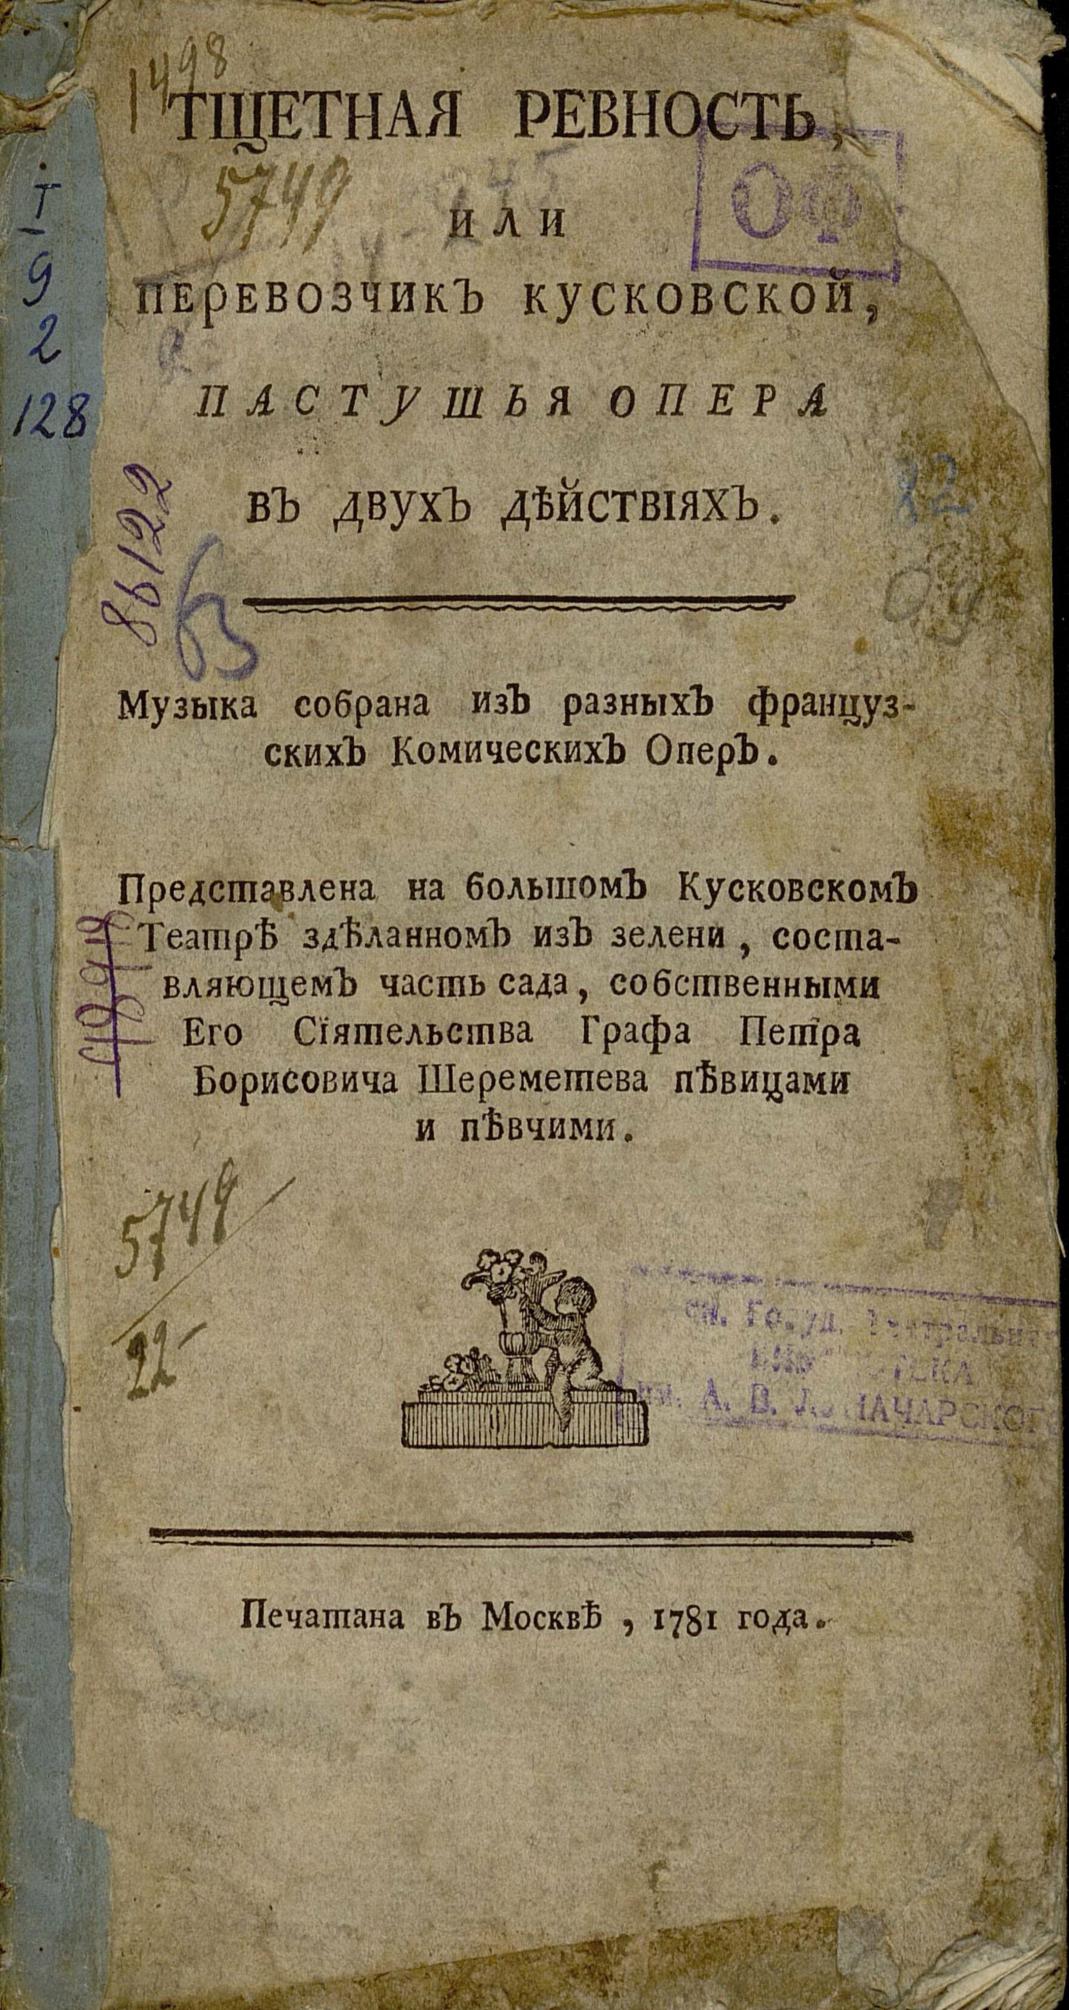 1498
ТЩЕТНАЯ РЕВНОСТЬ,
5749
ОФ
ИЛИ
ПЕРЕВОЗЧИКЪ КУСКОВСКОЙ,
I
9
2
128
ПАСТУШЬЯ ОПЕРА
ВЪ ДВУХЪ ДѢЙСТВІЯХЪ.
Музыка собрана изъ разныхъ француз-
скихъ Комическихъ Оперъ.
Представлена на большомъ Кусковскомъ
Театрѣ здѣланномъ изъ зелени, соста-
вляющемъ часть сада, собственными
Его Сїятельства Графа Петра
Борисовича Шереметева пѣвицами
и пѣвчими.
5749
22
им. А. В. ЛУНАЧАРСКОГО
Печатана въ Москвѣ, 1781 года.